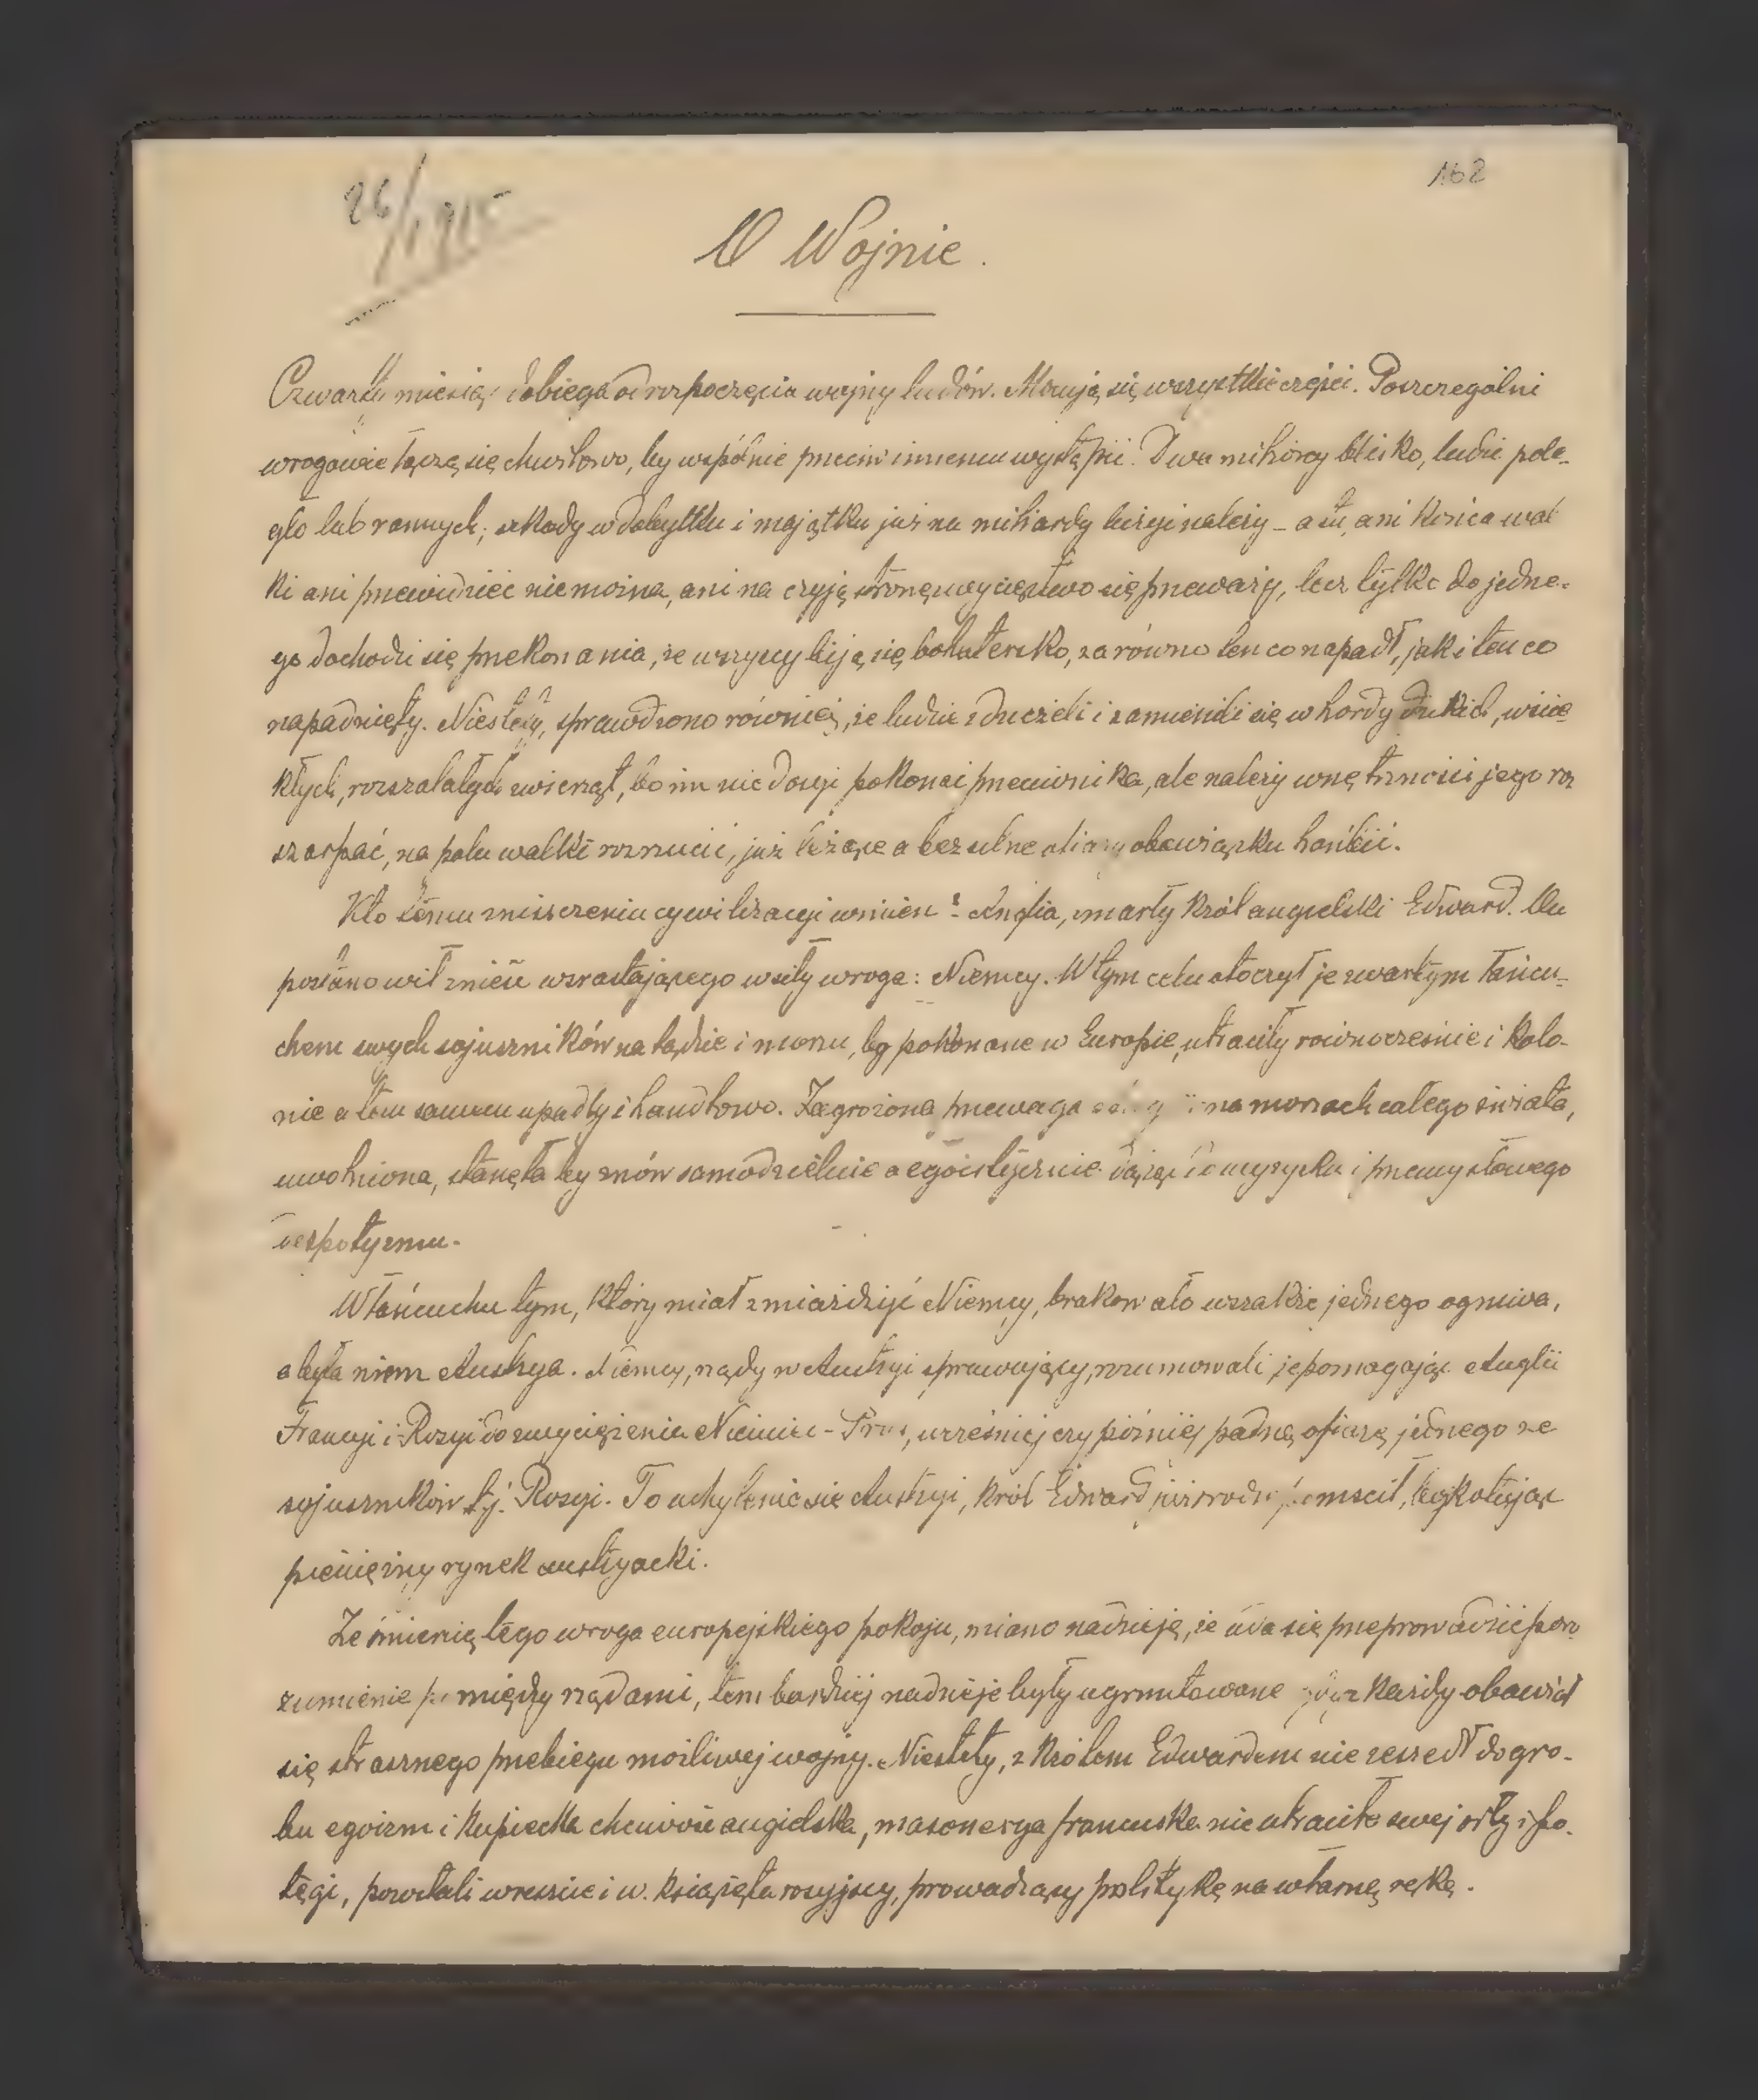 26/I 915
162
O Wojnie.
Czwarty miesiąc dobiega od rozpoczęcia wojny ludów. Mocują się wszystkie części. Poszczególni
wrogowie łączą się chwilowo, by wspólnie przeciw innemu wystąpić. Dwa miliony blisko, ludzi pole-
gło lub rannych; szkody w dobytku i majątku już na miliardy liczyć należy – a tu, ani końca wal
ki ani przewidzieć nie można, ani na czyją stronę zwycięstwo się przeważy, lecz tylko do jedne-
go dochodzi się przekonania, że wszyscy biją się bohatersko, zarówno ten co napadł, jak i ten co
napadnięty. Niestety, sprawdzono również, że ludzie zdziczeli i zamienili się w hordy dzikich, wście
kłych, rozszalałych zwierząt, bo im nie dosyć pokonać przeciwnika, ale należy wnętrzności jego roz
szarpać, na polu walki rozrzucić, już leżące a bezsilne ofiary obowiązku hańbić.
Kto temu zniszczeniu cywilizacyi winien? – Anglia, zmarły król angielski Edward. On
postanowił znieść wzrastającego w siły wroga: Niemcy. W tym celu otoczył je zwartym łańcu-
chem swych sojuszników na lądzie i morzu, by pokonane w Europie, utraciły równocześnie i kolo-
nie a tem samem upadły i handlowo. Zagrożona przewaga na morzach całego świata,
uwolniona, stanęłaby znów samodzielnie a egoistycznie dążąc do wyzysku i przemysłowego
despotyzmu.
W łańcuchu tym, który miał zmiażdżyć Niemcy, brakowało wszakże jednego ogniwa,
a była niem Austrya. Niemcy, rządy w Austryi sprawujący, rozumowali że pomagając Anglii
Francyi i Rosyi do zwyciężenia Niemiec – Prus, wcześniej czy później padną ofiarą jednego ze
sojuszników tj. Rosyi. To uchylenie się Austryi, król Edward pomścił, bojkotując
pieniężny rynek austryacki.
Ze śmiercią tego wroga europejskiego pokoju, miano nadzieję, że uda się przeprowadzić poro
zumienie pomiędzy rządami, tem bardziej nadzieje były ugruntowane gdyż każdy obawiał
się strasznego przebiegu możliwej wojny. Niestety, z królem Edwardem nie zeszedł do gro-
bu egoizm i kupiecka chciwość angielska, masonerya francuska nie utraciła swej siły i po-
tęgi, powstali wreszcie i w. książęta rosyjscy, prowadzący politykę na własną rękę.